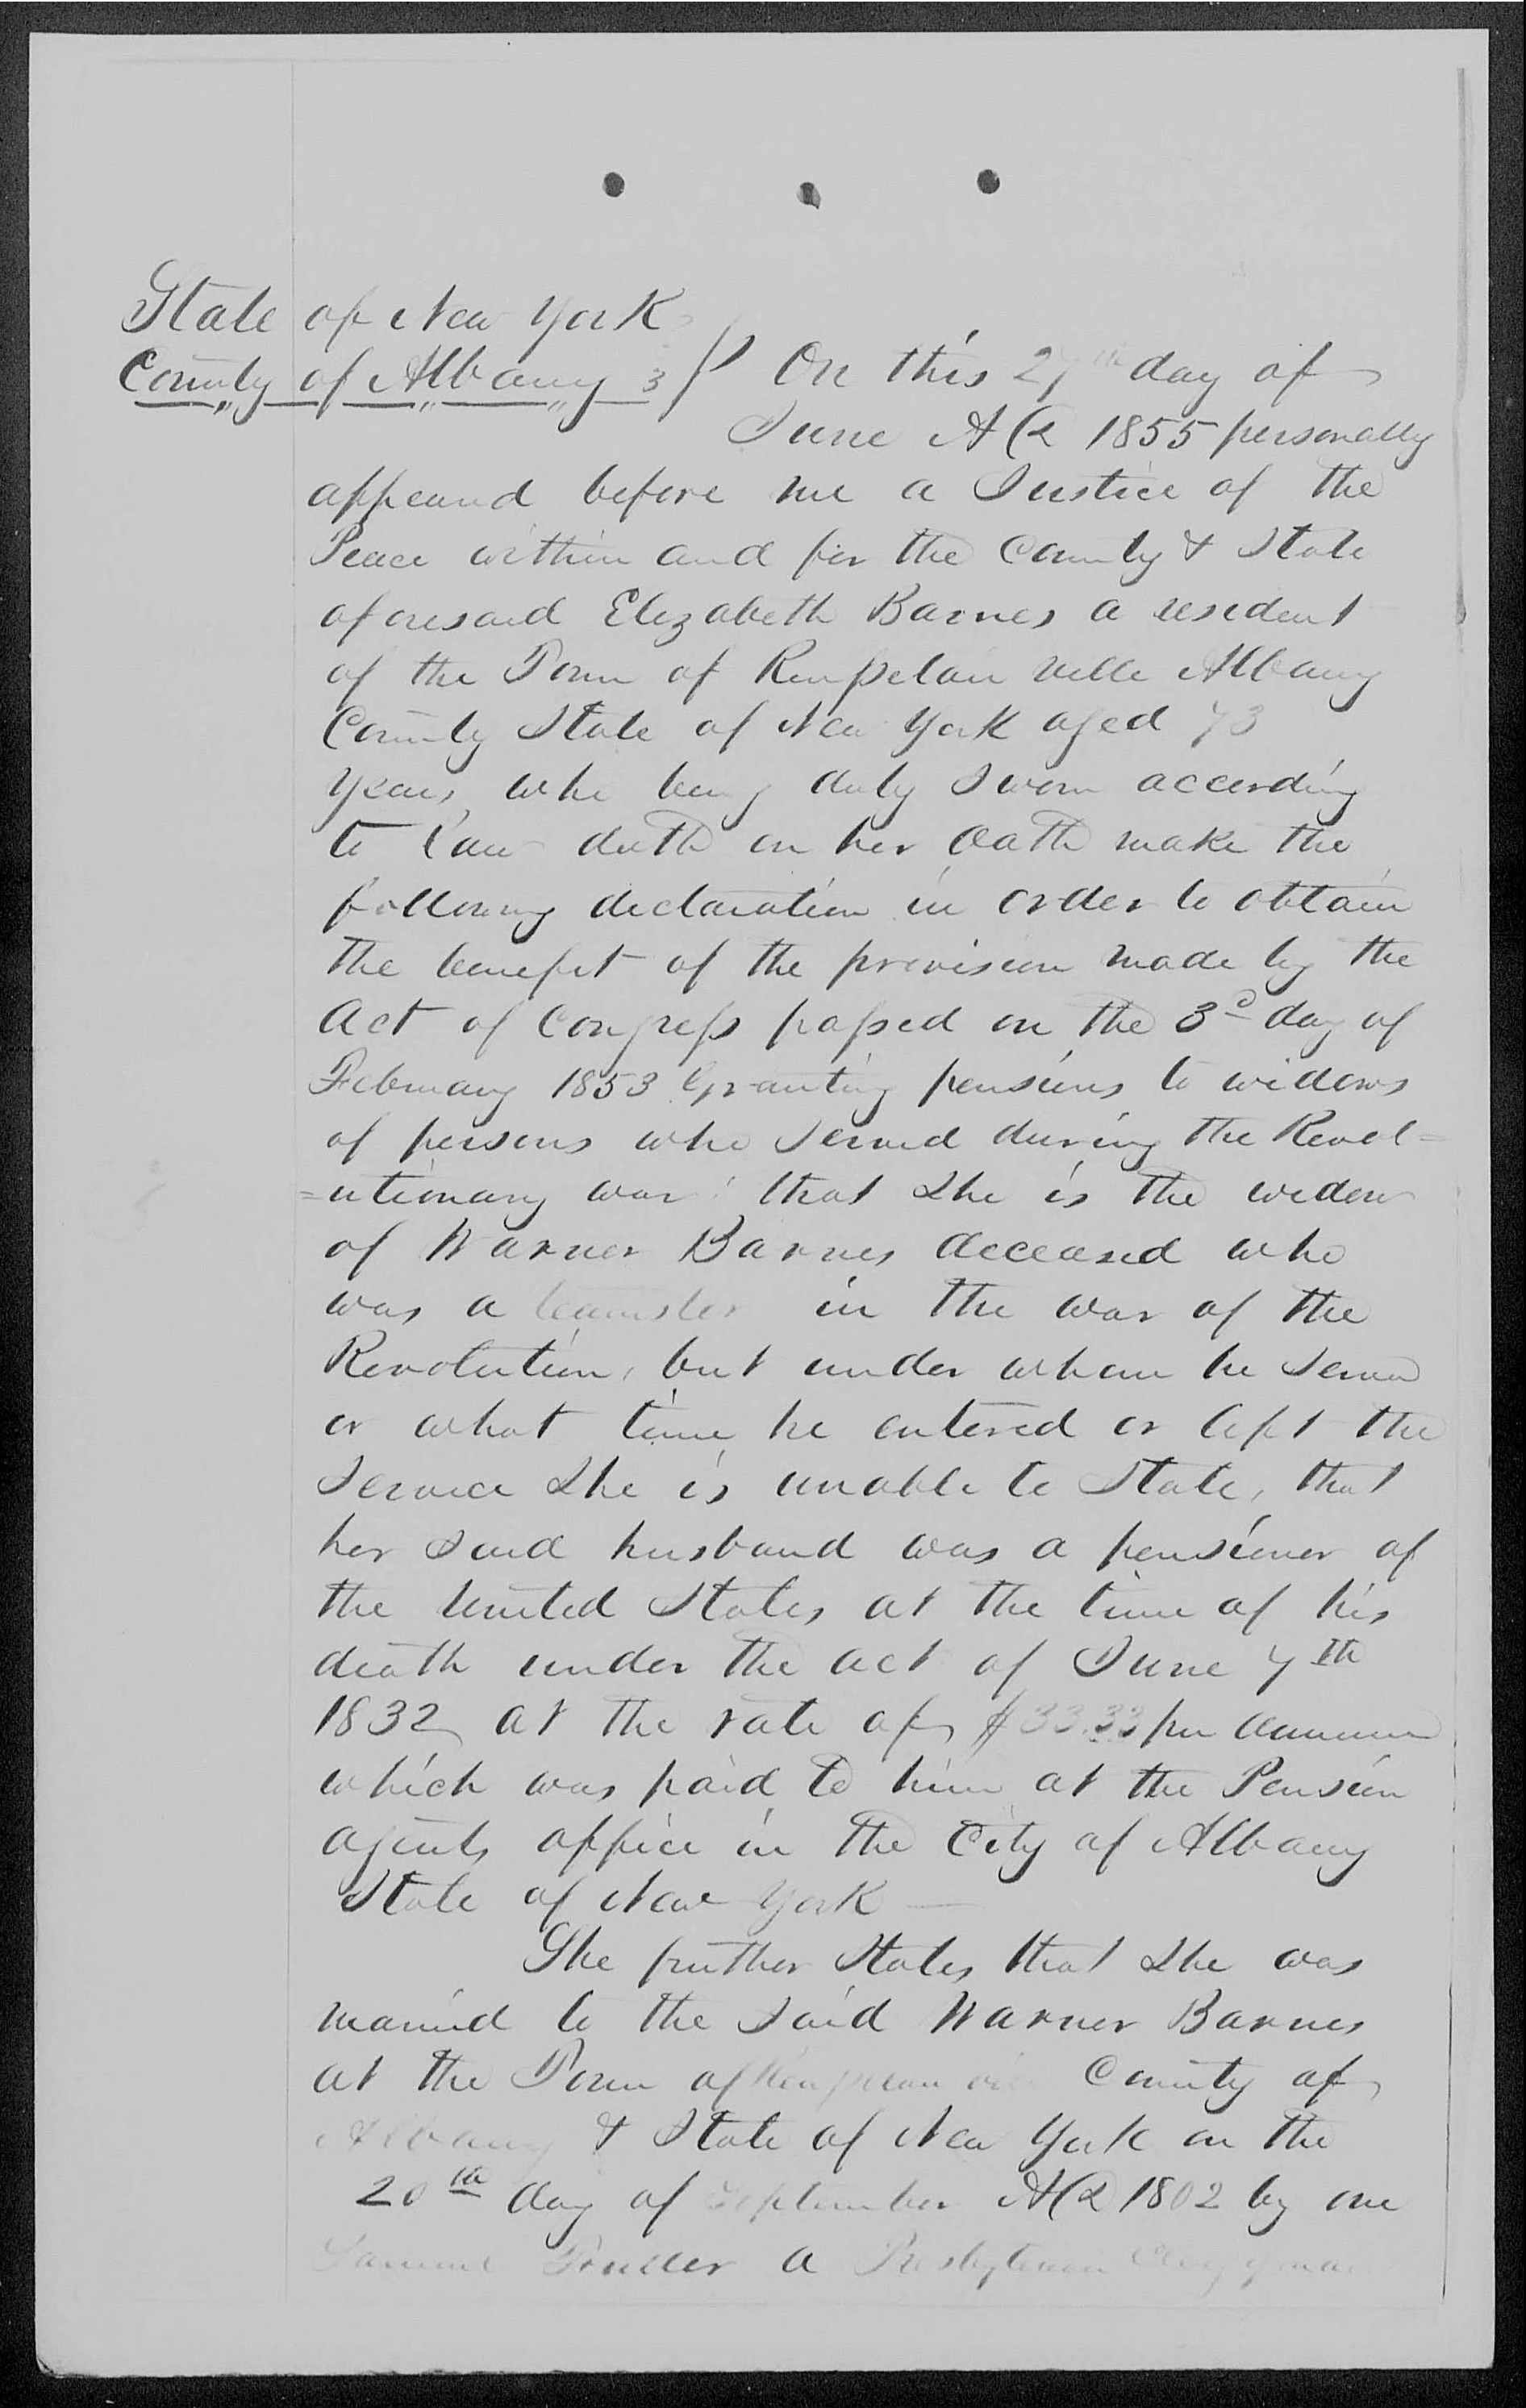 State of New York
County of Albany } ss On this 27th day of
June AD 1855 personally
appeared before me a Justice of the
Peace within and for the County & State
aforesaid Elizabeth Barnes a resident
of the Town of Rensselaer ville Albany
County State of New York aged 73
years, who being duly Sworn according
to law doth on her Oath make the
following declaration in order to obtain
the benefit of the provision made by the
Act of Congress passed on the 3d day of
February 1853 Granting pensions to widows
of persons who Served during the Revol=
=utionary war: that She is the widow
of Warner Barnes deceased who
was a teamster in the war of the
Revolution, but under whom he Served
or what time he entered or left the
Service She is unable to State, that
her Said husband was a pensioner of
the United States at the time of his
death under the act of June 7th
1832 at the rate of $33.33 per annum
which was paid to him at the Pension
agents office in the City of Albany
State of New York —
She further States that She was
married to the Said Warner Barnes
at the Town of Rensselaer ville County of
Albany & State of New York on the
20th day of September AD 1802 by one
Samuel Fuller a Presbyterian Clergyman